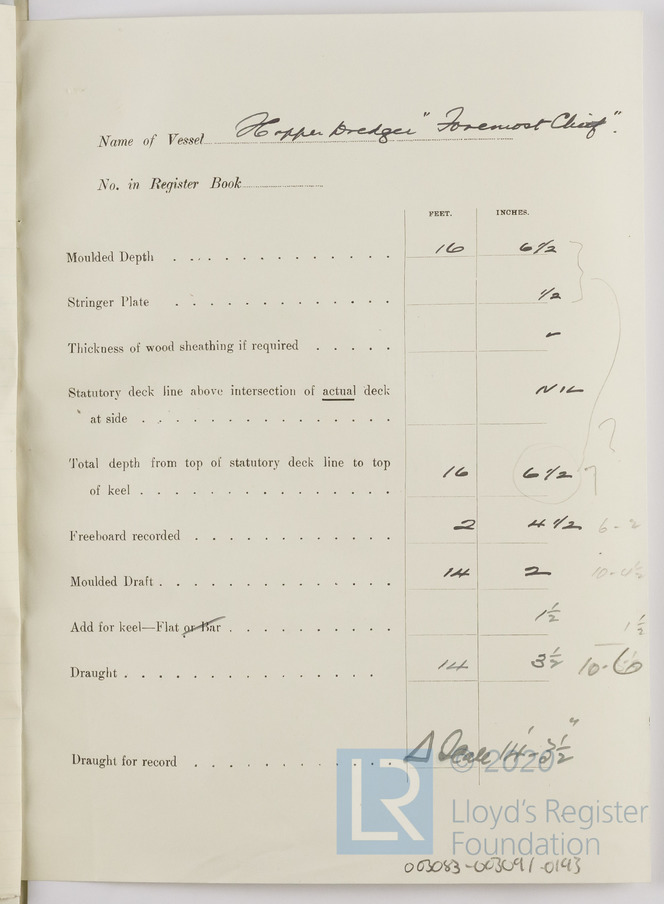 Name of Vessel Hopper Dredger "Foremost Chief".
No. in Register Book
FEET. INCHES.
Moulded Depth 16 6 1/2
Stringer Plate 1/2
Thickness of wood sheathing if required -
Statutory deck line above intersection of actual deck NIL
at side
Total depth from top of statutory deck line to top
of keel 16 6 1/2 ?
Freeboard recorded 2 4 1/2 6-2
Moulded Draft 14 2 10-4 1/2
Add for keel—Flat or Bar 1 1/2 1 1/2
Draught 14 3 1/2 10-6
Draught for record Δ Scale 14'-3 1/2"
© 2020
LR
Lloyd's Register
Foundation
003083-003091-0193